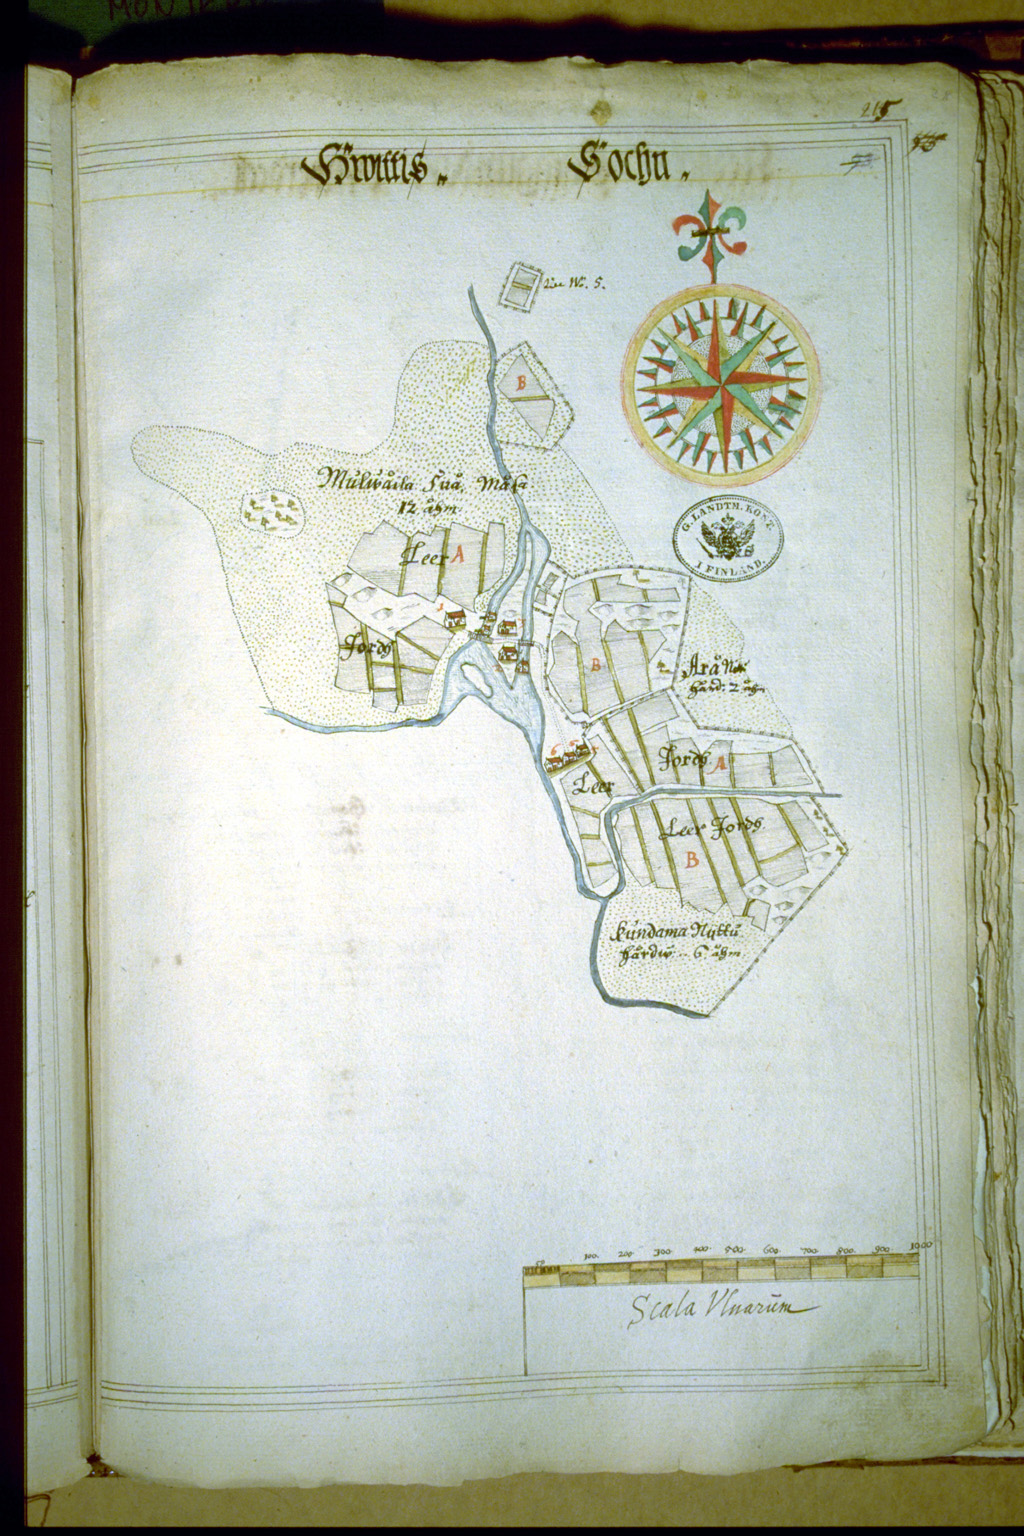 215
Hwittis„ Sochn„
No. 5.
B
Mulwåila
12 åhm.
Leer A
Jordh
B
hård: 2 åhm
Jordh A
Leer
Leer Jordh
B
Kundama Nyttu
hårdw: 6 åhm
G. LANDTM. KONT.
I FINLAND.
50 100 200 300 400 500 600 700 800 900 1000
Scala Vlnarum